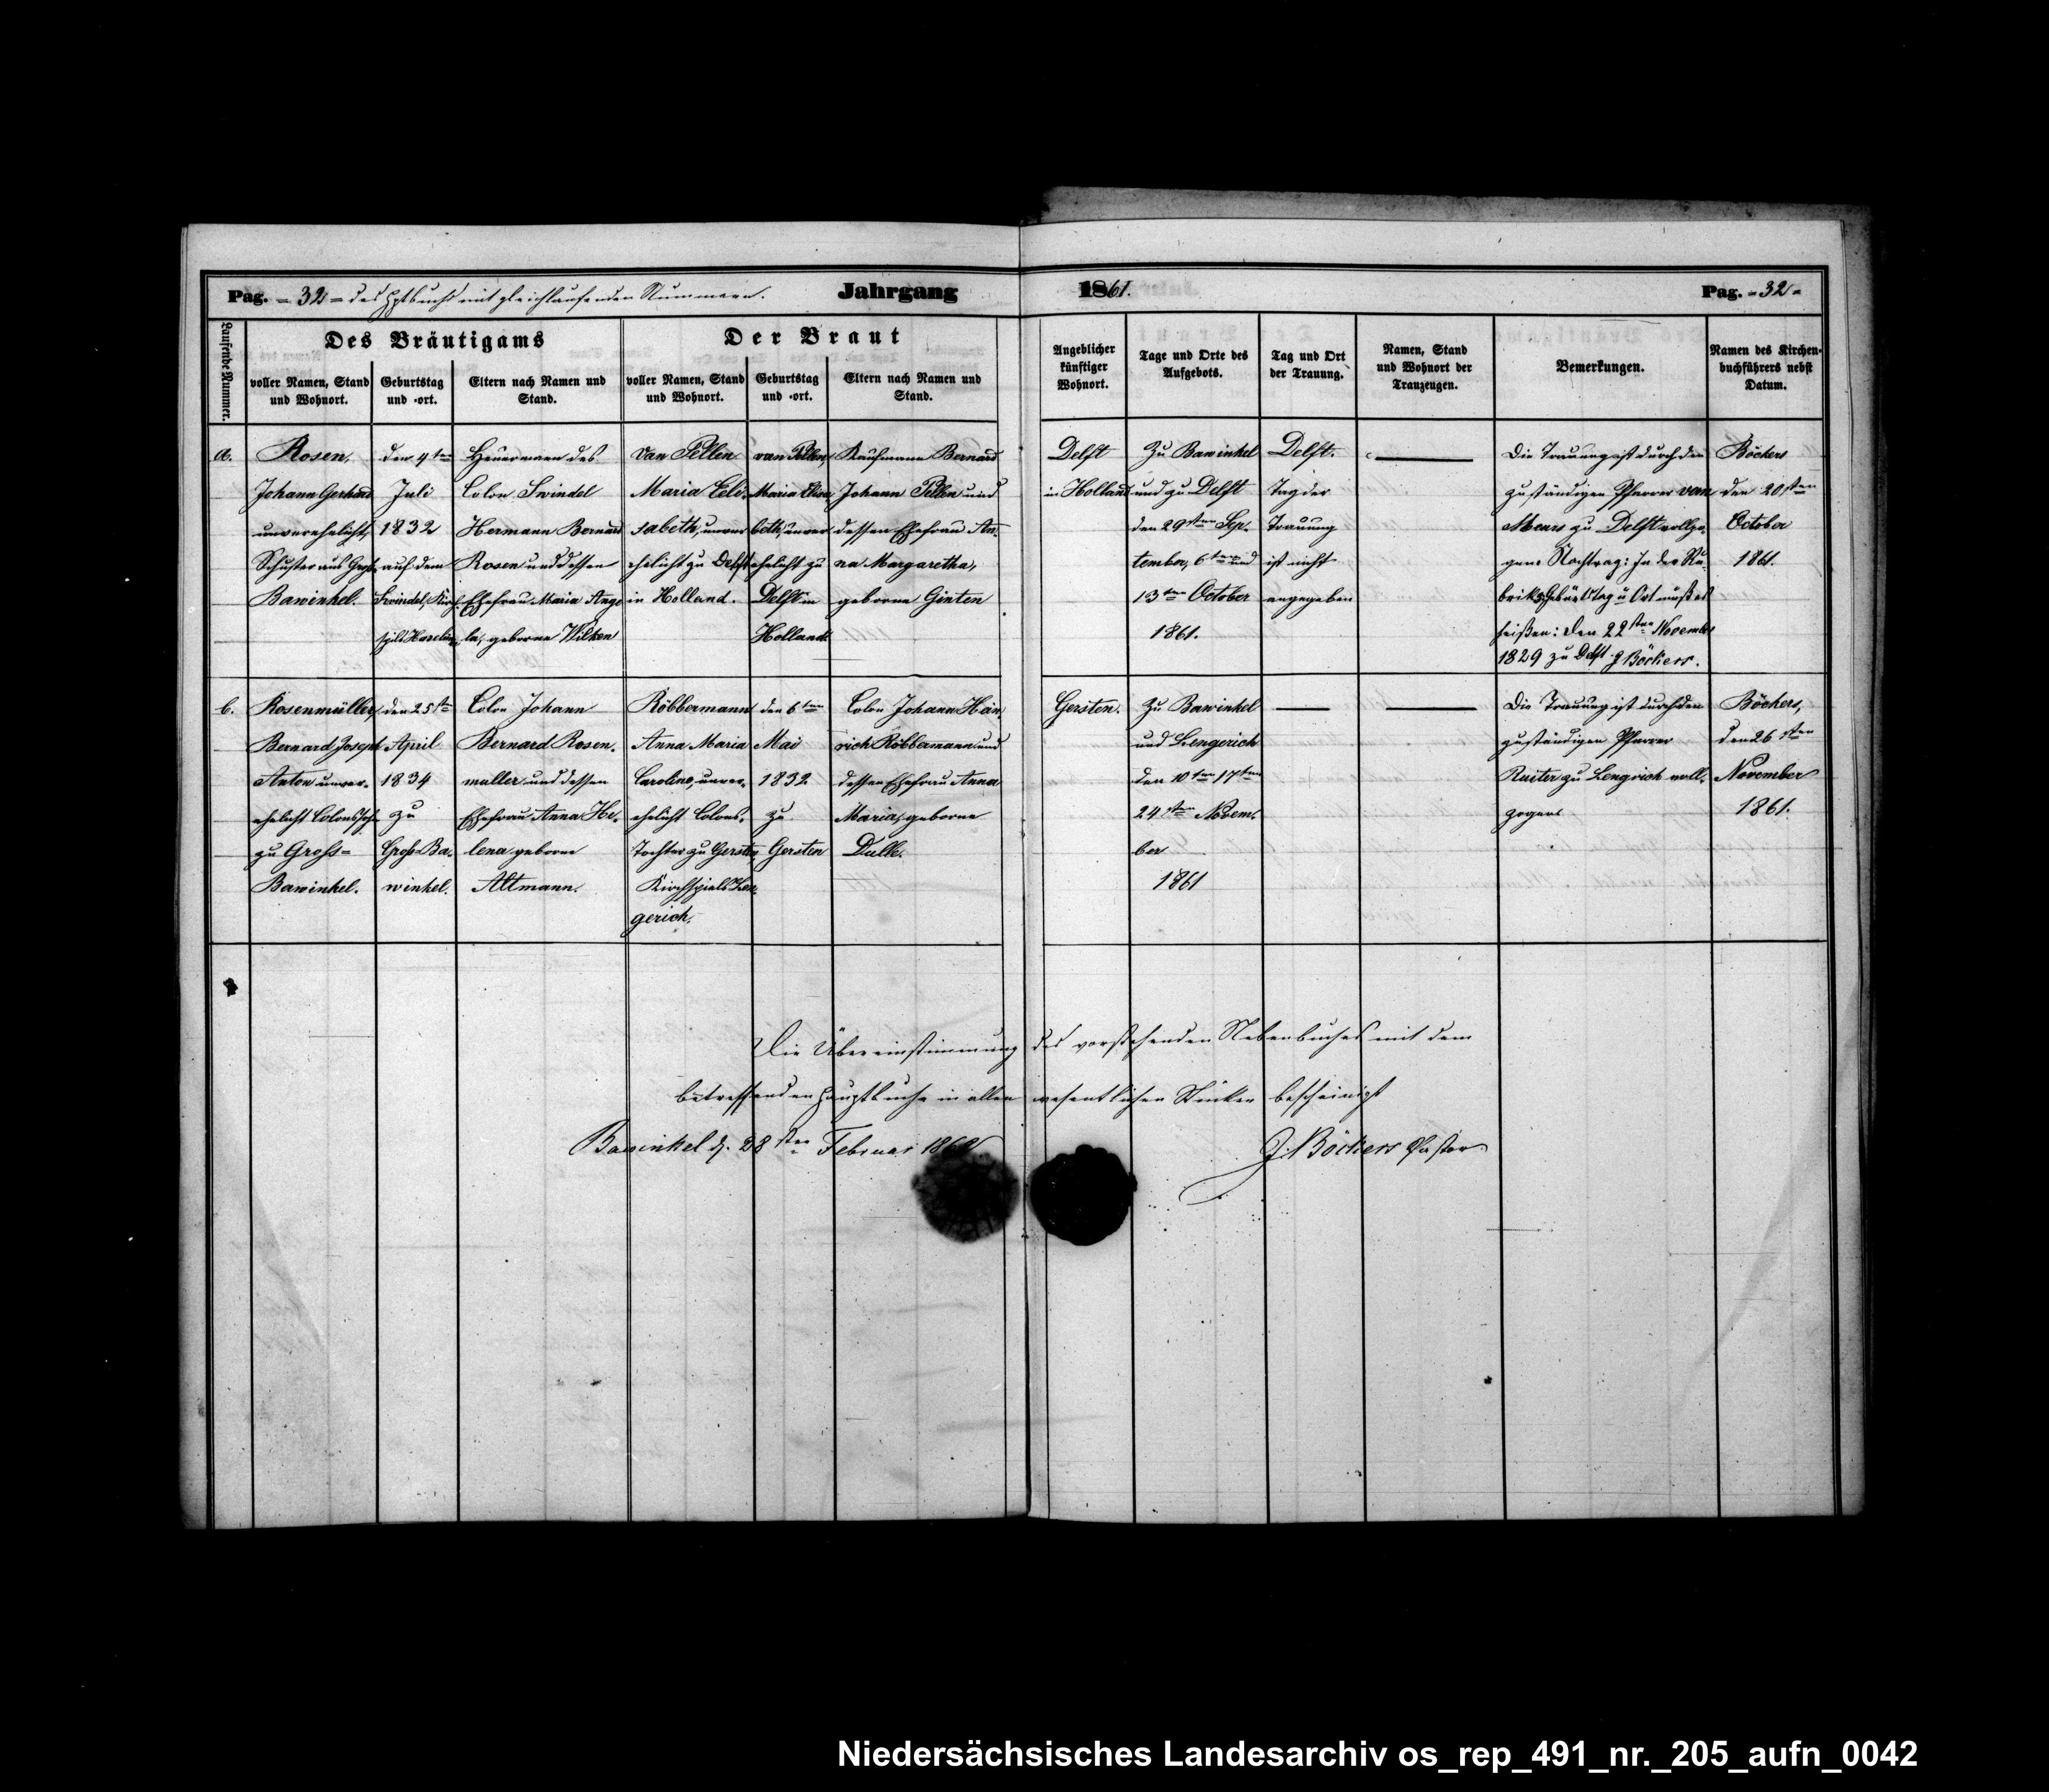 Pag. = 32 = des Hptbuchs mit gleichlaufenden Nummern. Jahrgang 1861. Pag. = 32 =
Laufende Nummer.
Des Bräutigams
voller Namen, Stand und Wohnort.
Geburtstag und -ort.
Eltern nach Namen und Stand.
Der Braut
voller Namen, Stand und Wohnort.
Geburtstag und -ort.
Eltern nach Namen und Stand.
Angeblicher künftiger Wohnort.
Tage und Orte des Aufgebots.
Tag und Ort der Trauung.
Namen, Stand und Wohnort der Trauzeugen.
Bemerkungen.
Namen des Kirchenbuchführers nebst Datum.
a.
Rosen,
Johann Gerhard
unverehelicht,
Schuster aus Groß
Bawinkel.
den 4ten
Juli
1832
auf dem
Swindel, Kirch
spils Haselün
Heuermann des
Colon Swindel
Hermann Bernard
Rosen und dessen
Ehefrau Maria Ange
la, geborne Wilken
Van Pellen
Maria Eli-
sabeth, unver
ehelicht zu Delft
in Holland.
van Pellen,
Maria Elisa
beth, unver
ehelicht zu
Delft in
Holland
Kaufmann Bernard
Johann Pellen und
dessen Ehefrau An-
na Margaretha,
geborne Ginten
Delft
in Holland
Zu Bawinkel
und zu Delft
den 29sten Sep-
tember, 6ten und
13ten October
1861.
Delft.
Tag der
Trauung
ist nicht
angegeben
Die Trauung ist durch den
zuständigen Pfarrer van
Meurs zu Delft vollzo-
gen. Nachtrag: In der Ru-
brik Geburtstag u Ort muß es
heißen: den 22sten November
1829 zu Delft J Böckers.
Böckers
den 20sten
October
1861.
b.
Rosenmüller,
Bernard Joseph
Anton unver-
ehelicht Colonssohn
zu Groß=
Bawinkel.
den 25ste
April
1834
zu
Groß-Ba-
winkel.
Colon Johann
Bernard Rosen-
muller und dessen
Ehefrau Anna He-
lena geborne
Altmann.
Röbbermann
Anna Maria
Carolina, unver-
ehelicht Colons-
Tochter zu Gersten
Kirchspiels Len
gerich.
den 6ten
Mai
1832
zu
Gersten
Colon Johann Hein
rich Röbbermann und
dessen Ehefrau Anna
Maria, geborne
Dulle.
Gersten.
Zu Bawinkel
und Lengerich
den 10ten 17ten
24sten Novem-
ber
1861
Die Trauung ist durch den
zuständigen Pfarrer
Ruiter zu Lengrich voll-
zogen
Böckers,
den 26sten
November
1861.
Die Übereinstimmung des vorstehenden Nebenbuches mit dem
betreffenden Hauptbuche in allen wesentlichen Stücken bescheinigt
Bawinkel d. 28sten Februar 1862 J. Böckers Pastor
Niedersächsisches Landesarchiv os_rep_491_nr._205_aufn_0042